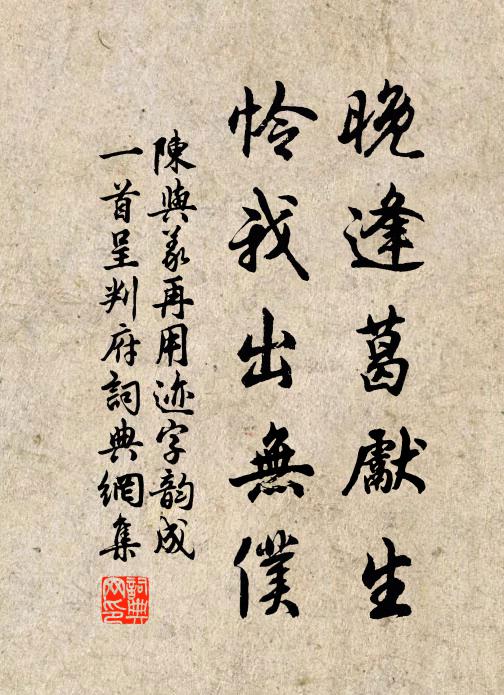 晚逢葛獻生
憐我出無僕
陳與義再用迹字韵成
一首呈判府詞典網集
詞典
网印